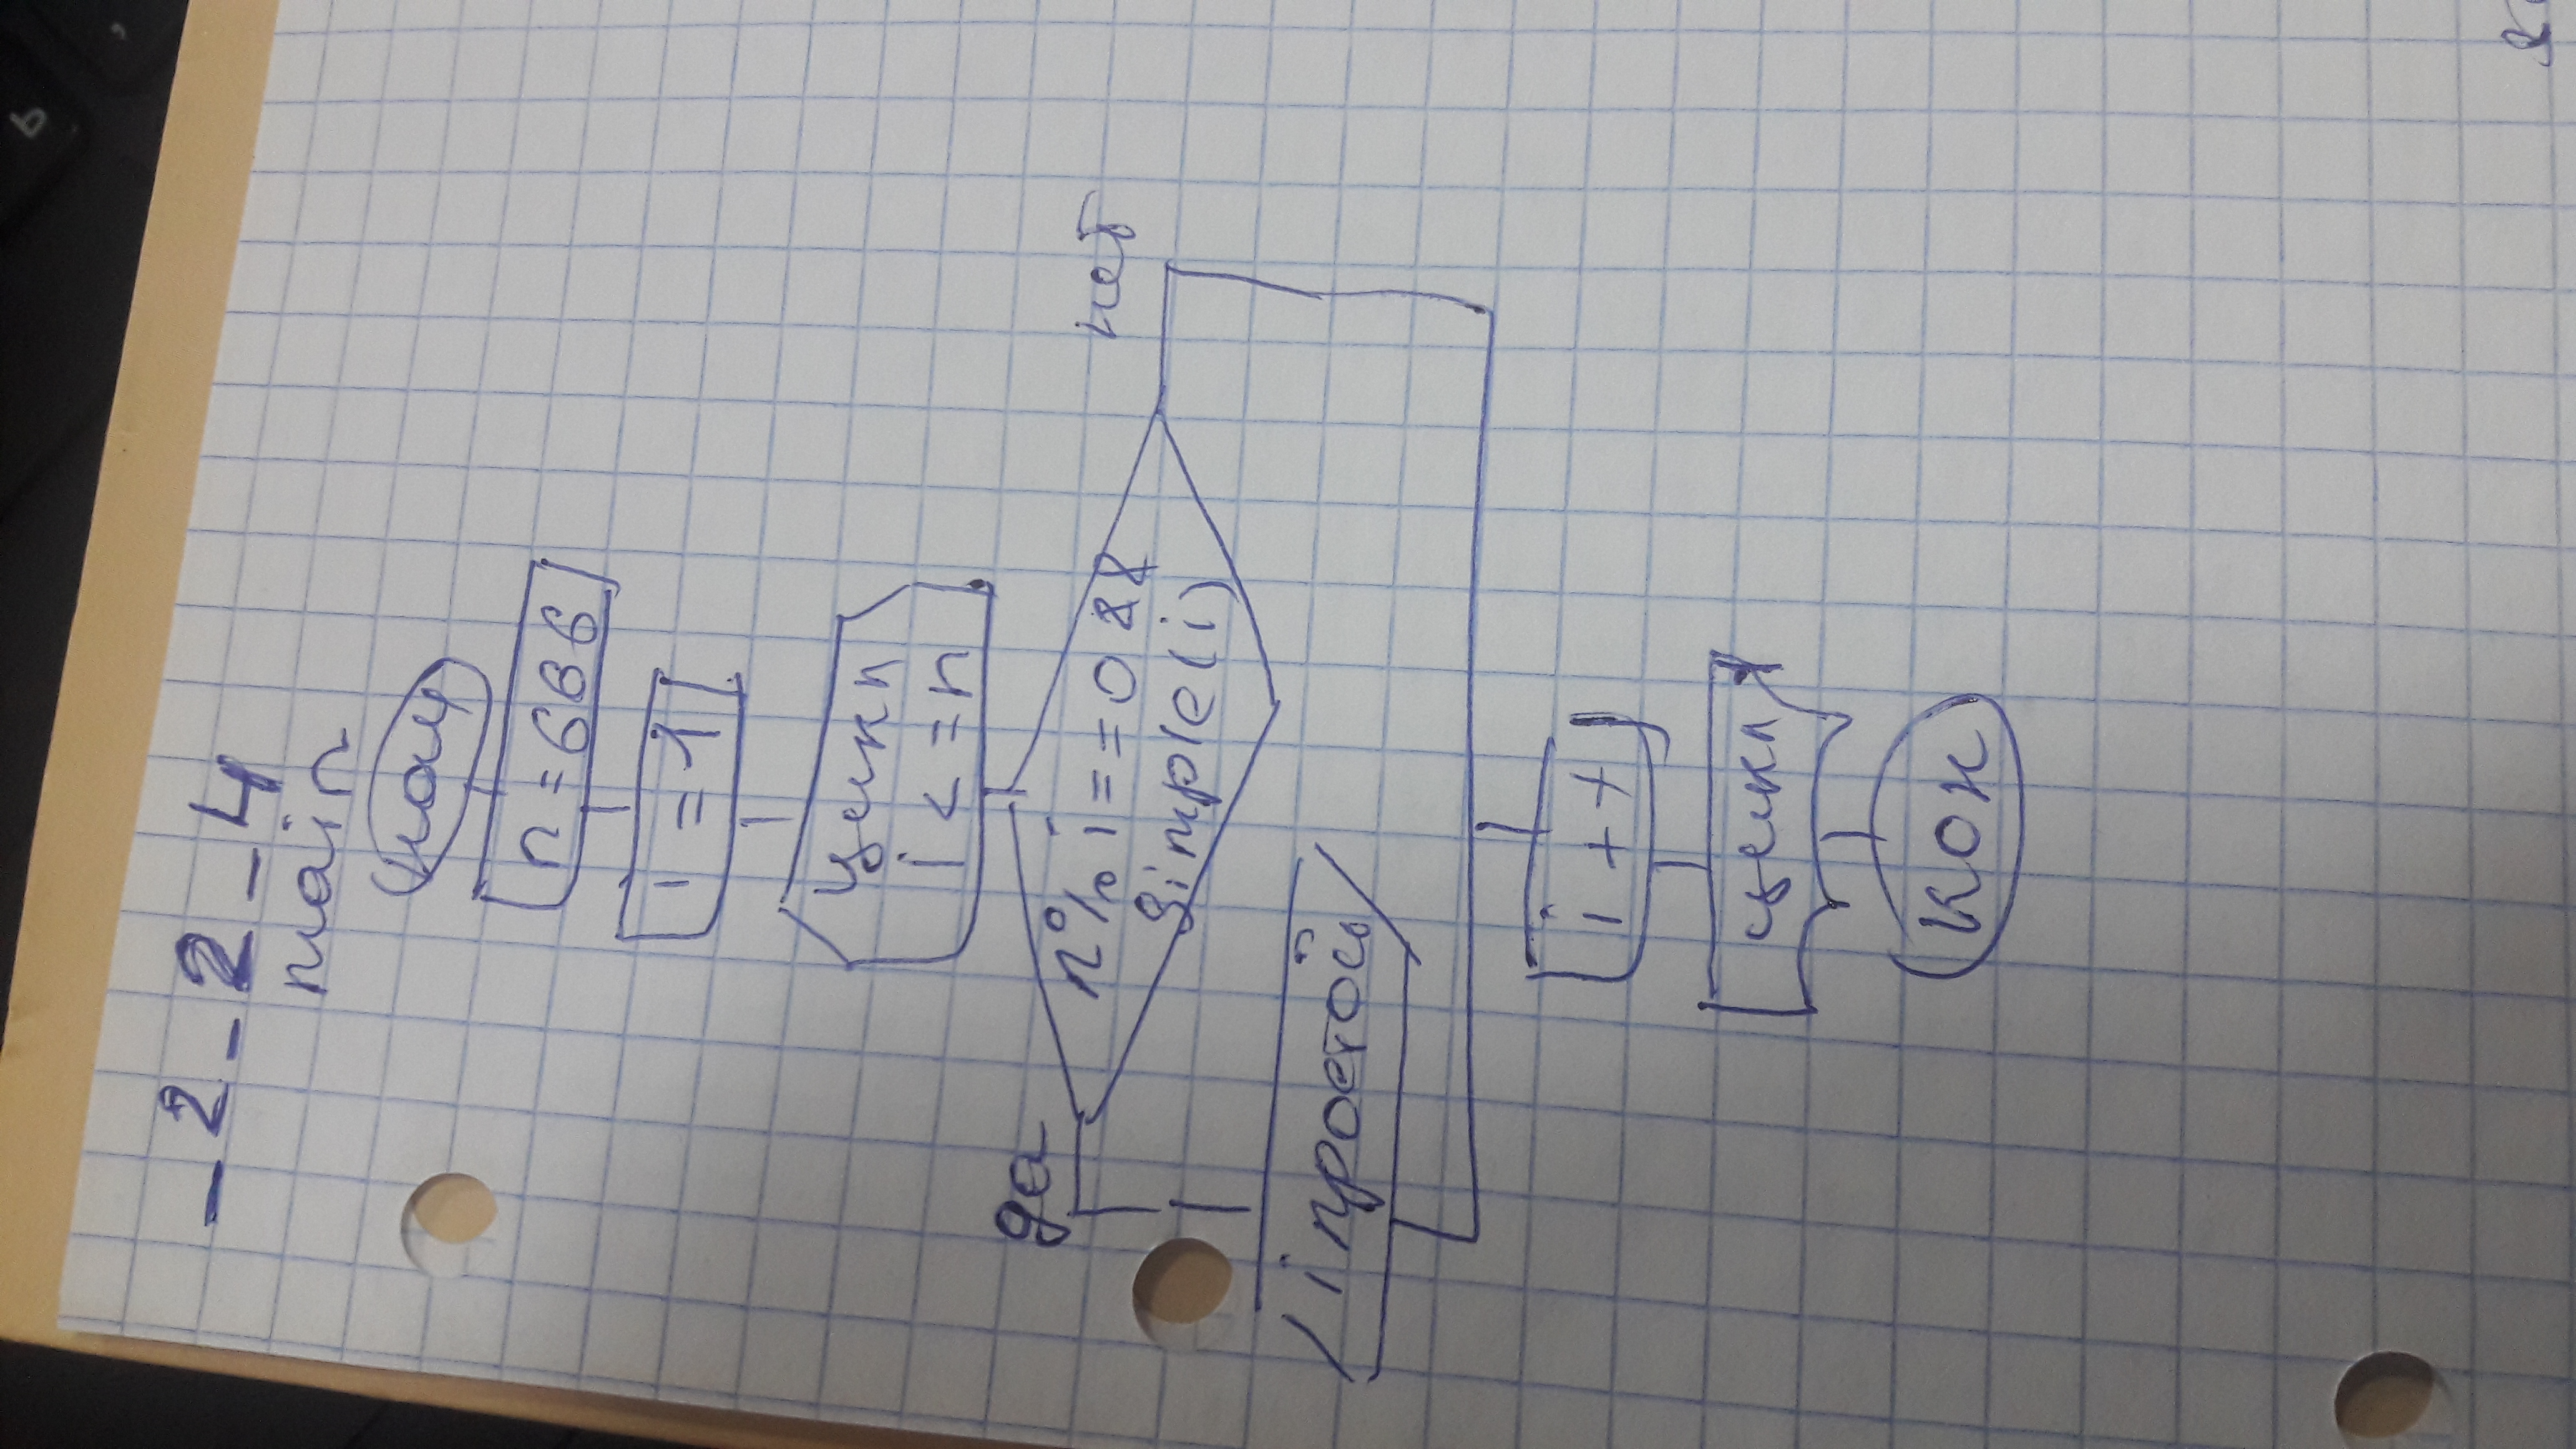 _2_2_4
main
нач
n=666
i=1
цикл
i<=n
да
n%i==0 &&
нет
simple(i)
i простой
i++
цикл
кон